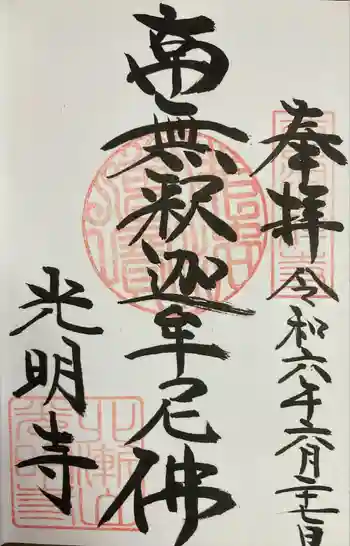 奉拝
令和六年六月二十七日
南無釈迦牟尼佛
光明寺